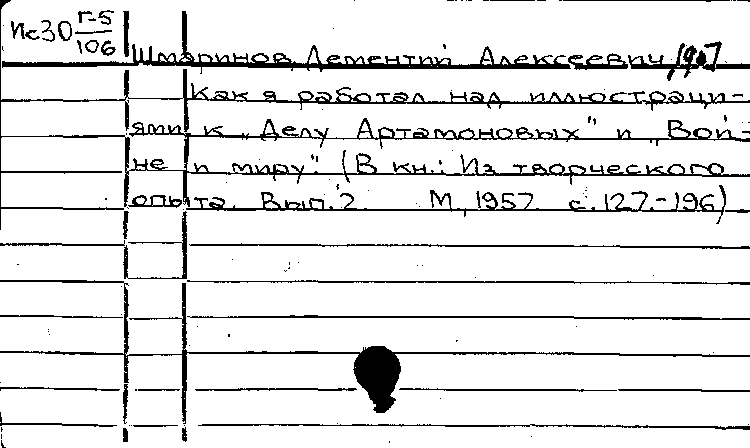 Ис30 Г-5/106
Шмаринов, Дементий Алексеевич, 1907
Как я работал над иллюстраци-
ями к „Делу Артамоновых" и „Вой-
не и миру". (В кн.: Из творческого
опыта. Вып. 2. М., 1957. с. 127.-196)